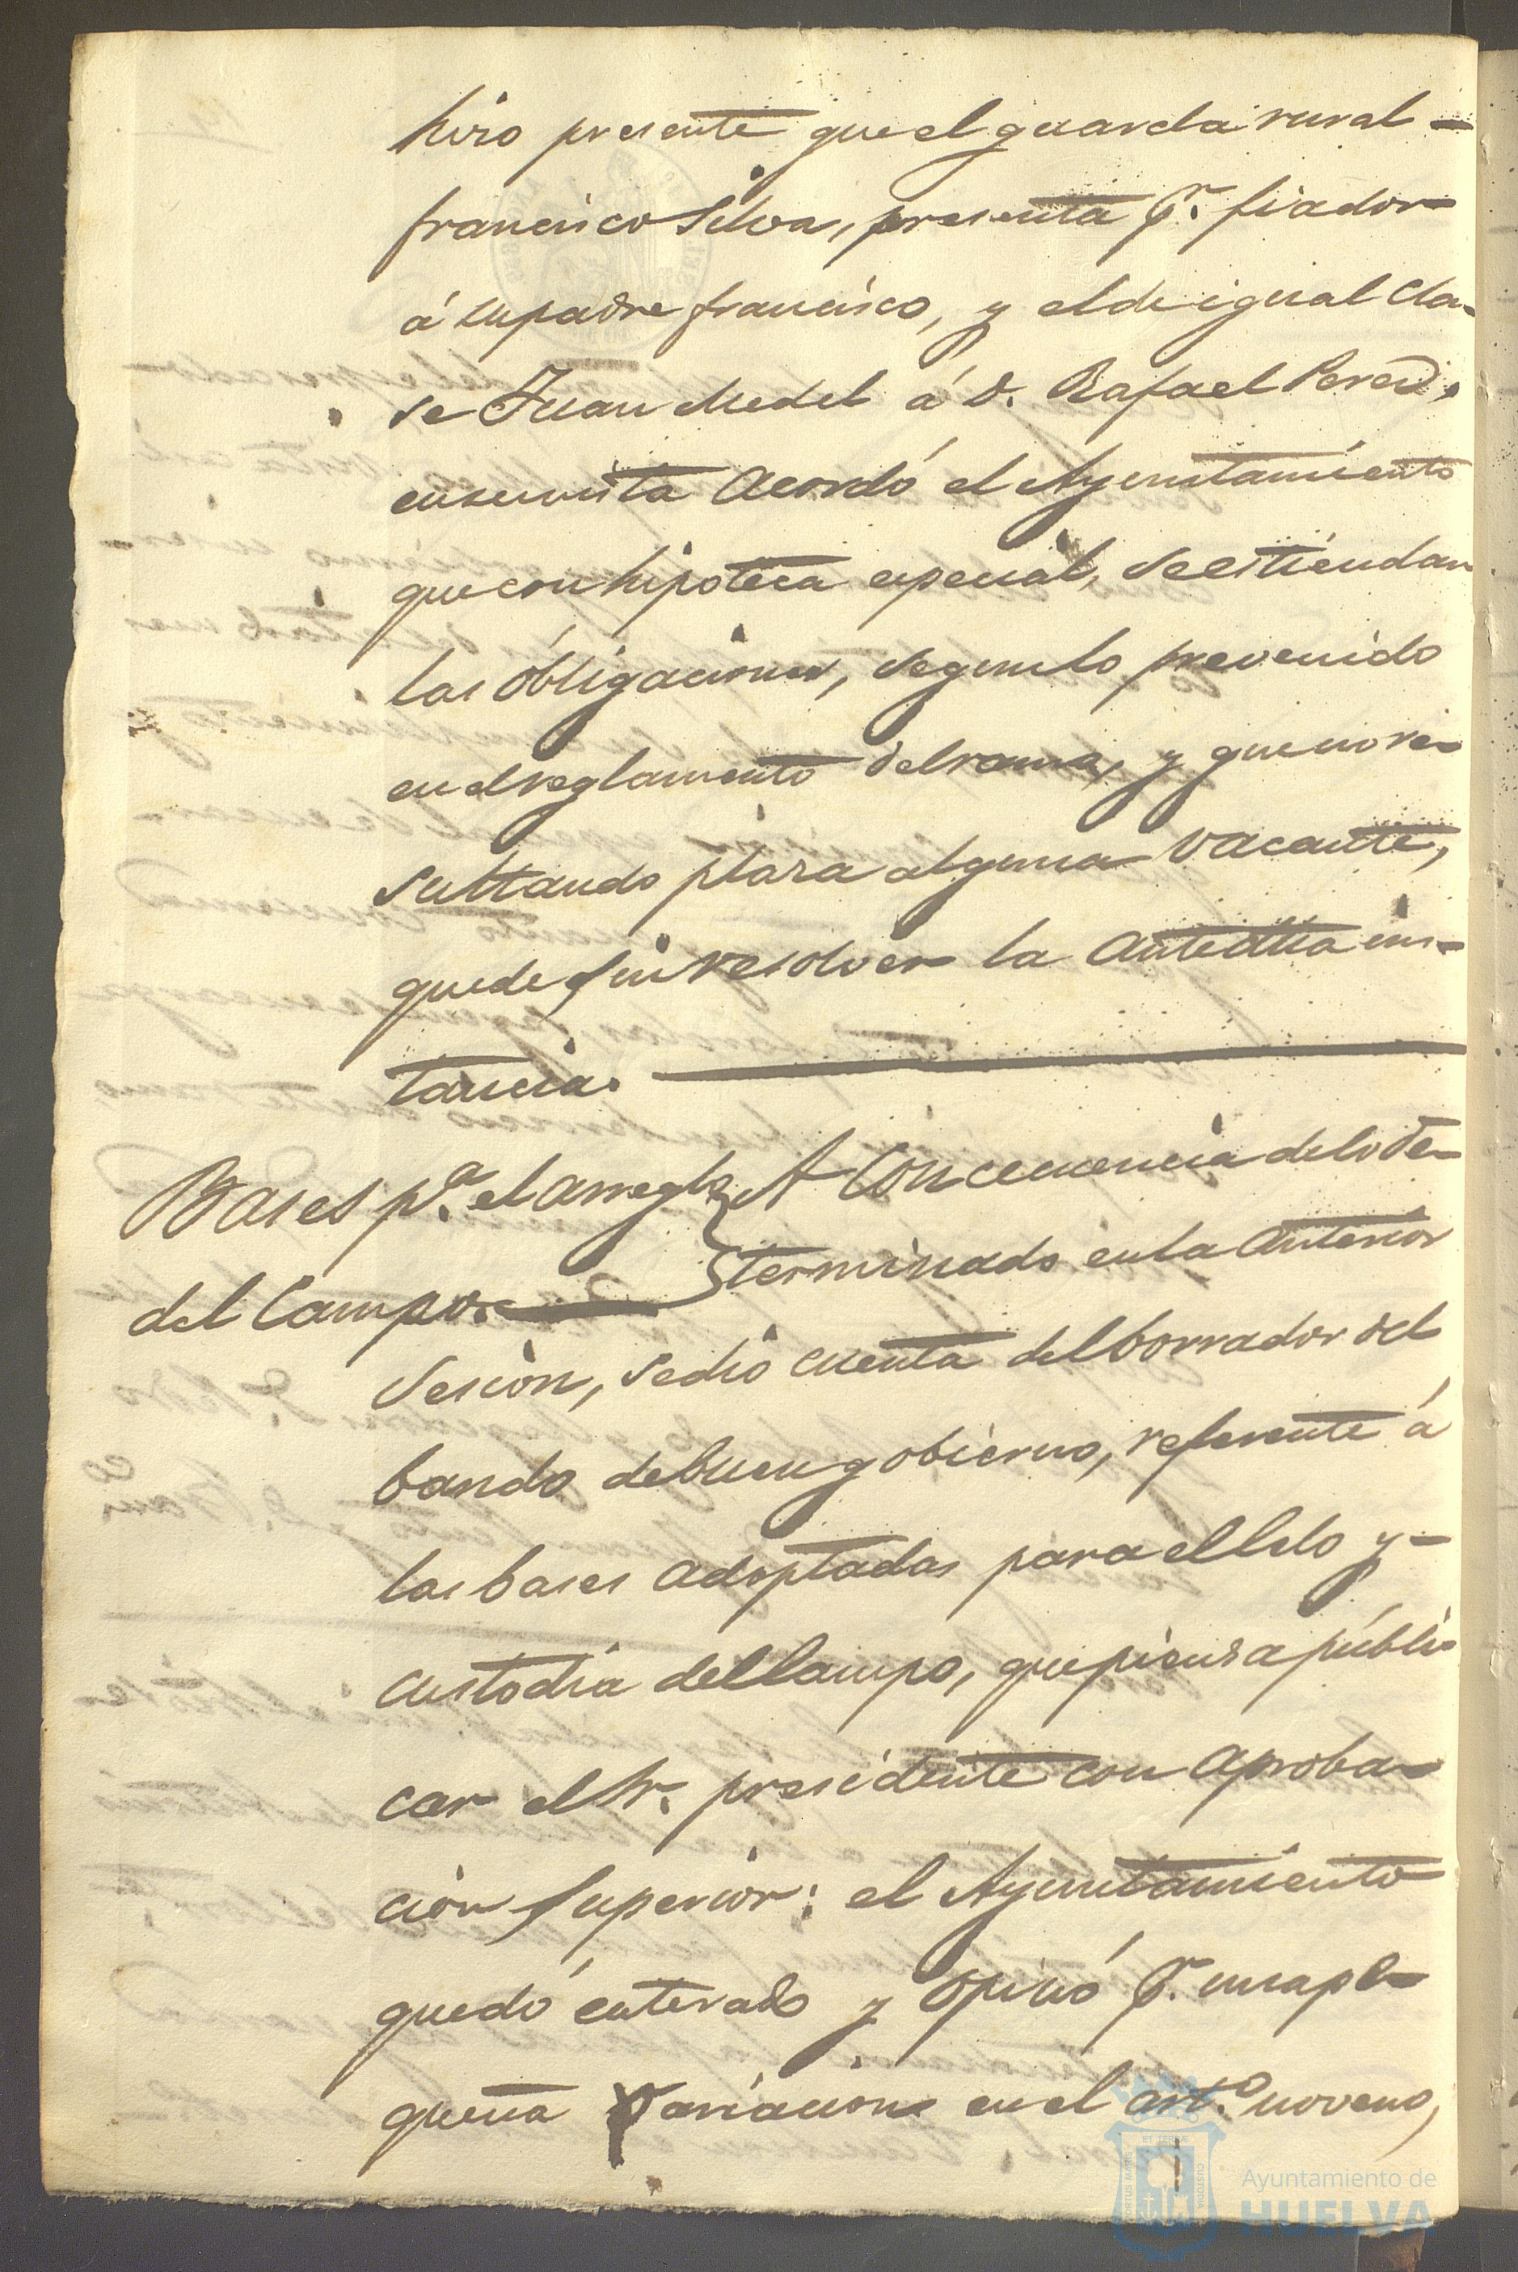 hizo presente que el guarda rural
francisco Silva, presenta pr. fiador
á su padre francisco, y el de igual cla-
se Juan Medel á D. Rafael Perez,
en su vista acordó el Ayuntamiento
que con hipoteca especial, se estiendan
las obligaciones, segun lo prevenido
en el reglamento del ramo, y que no re-
sultando plaza alguna vacante,
quede sin resolver la antedha ins-
tancia.
Bases pa. el arreglo
del Campo.
A Concecuencia de lo de-
terminado en la anterior
sesion, se dio cuenta del borrador del
bando de buen gobierno, referente á
las bases adoptadas para el Celo y
custodia del Campo, que piensa públi
car el Sr. presidente con aproba-
cion superior: el Ayuntamiento
quedó enterado y opinó pr. una pe-
queña variacion en el arto. noveno,
Ayuntamiento de
HUELVA